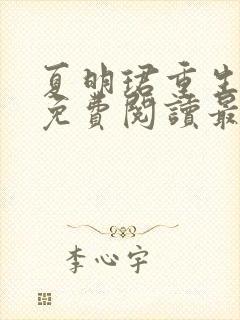 夏明珺重生
免費閱讀最
李心宇